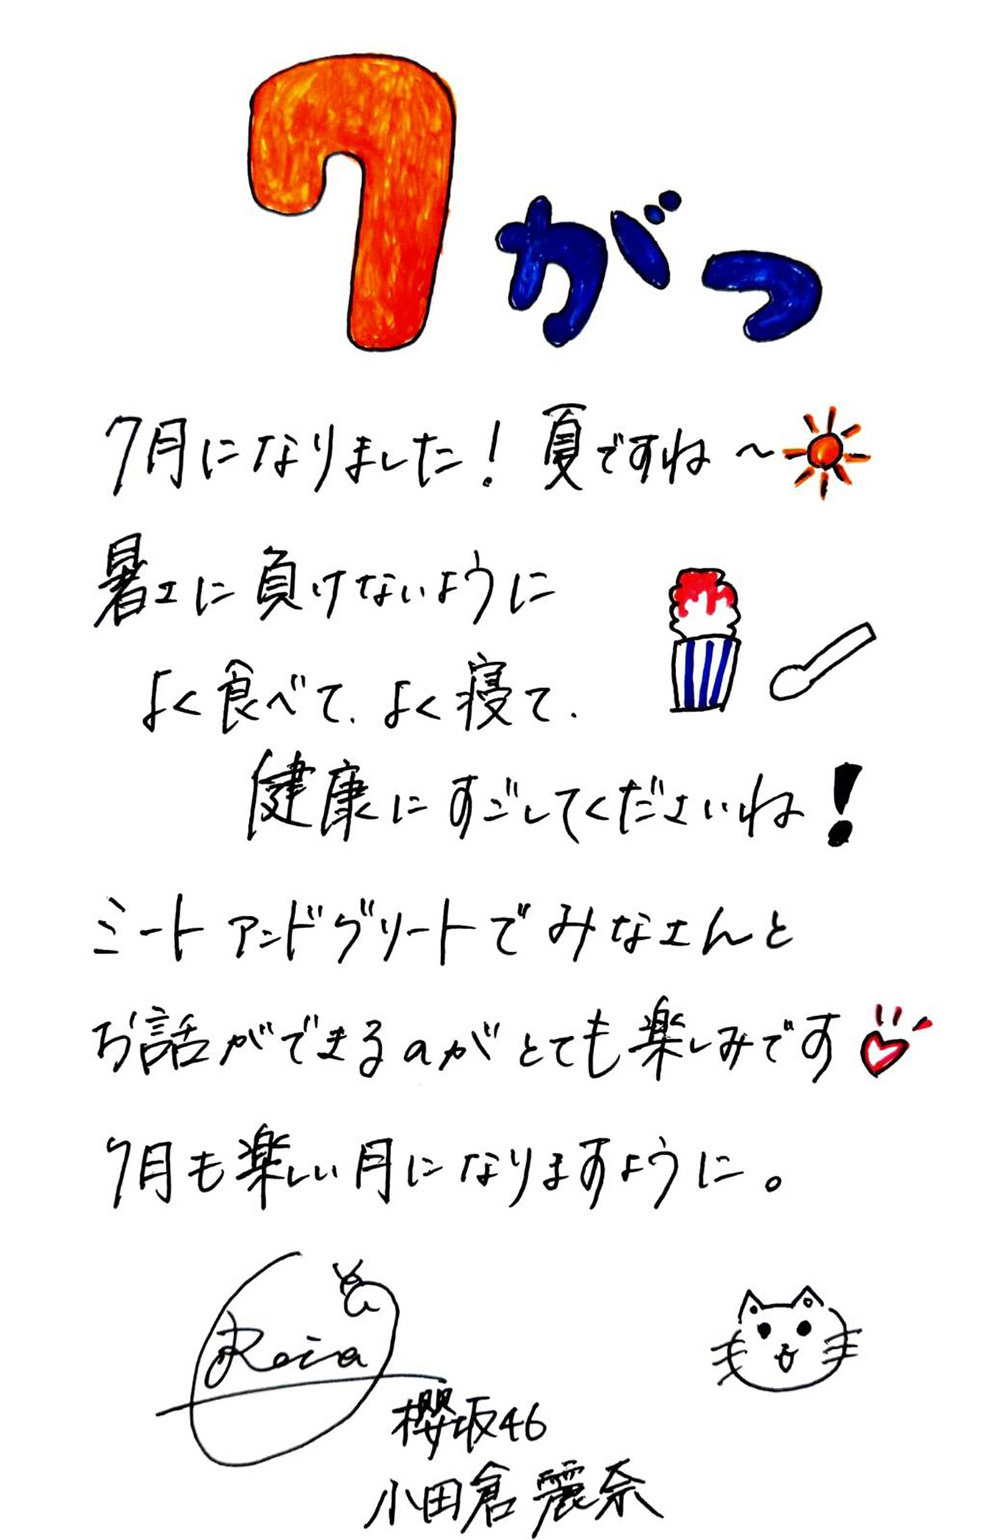 7がつ
7月になりました！夏ですね〜
暑さに負けないように
よく食べて、よく寝て、
健康にすごしてくださいね！
ミートアンドグリートでみなさんと
お話ができるのがとても楽しみです
7月も楽しい月になりますように。
Reina
櫻坂46
小田倉麗奈